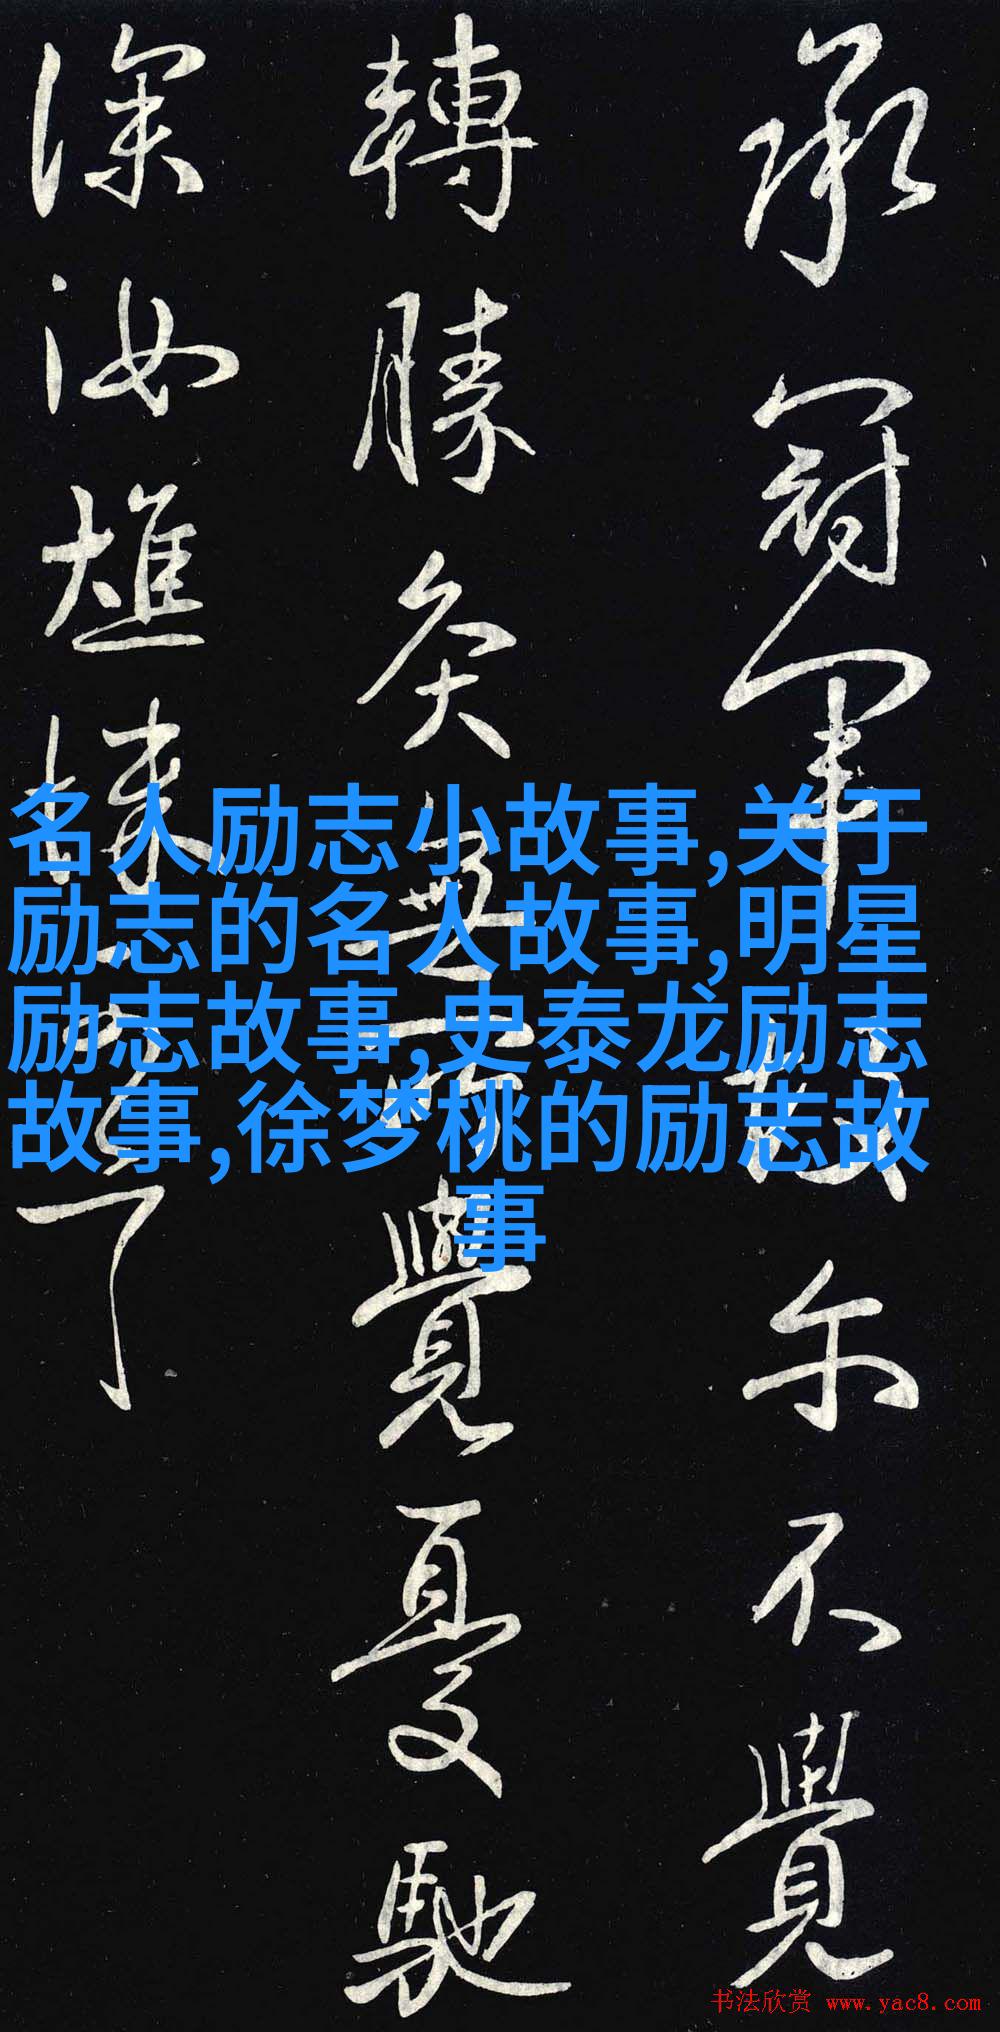 承冠軍故尔不覺
轉勝灸無所覺憂馳
深汝燋悚
了
名人励志小故事,关于
励志的名人故事,明星
励志故事,史泰龙励志
故事,徐梦桃的励志故
事
书法欣赏 www.yac8.com